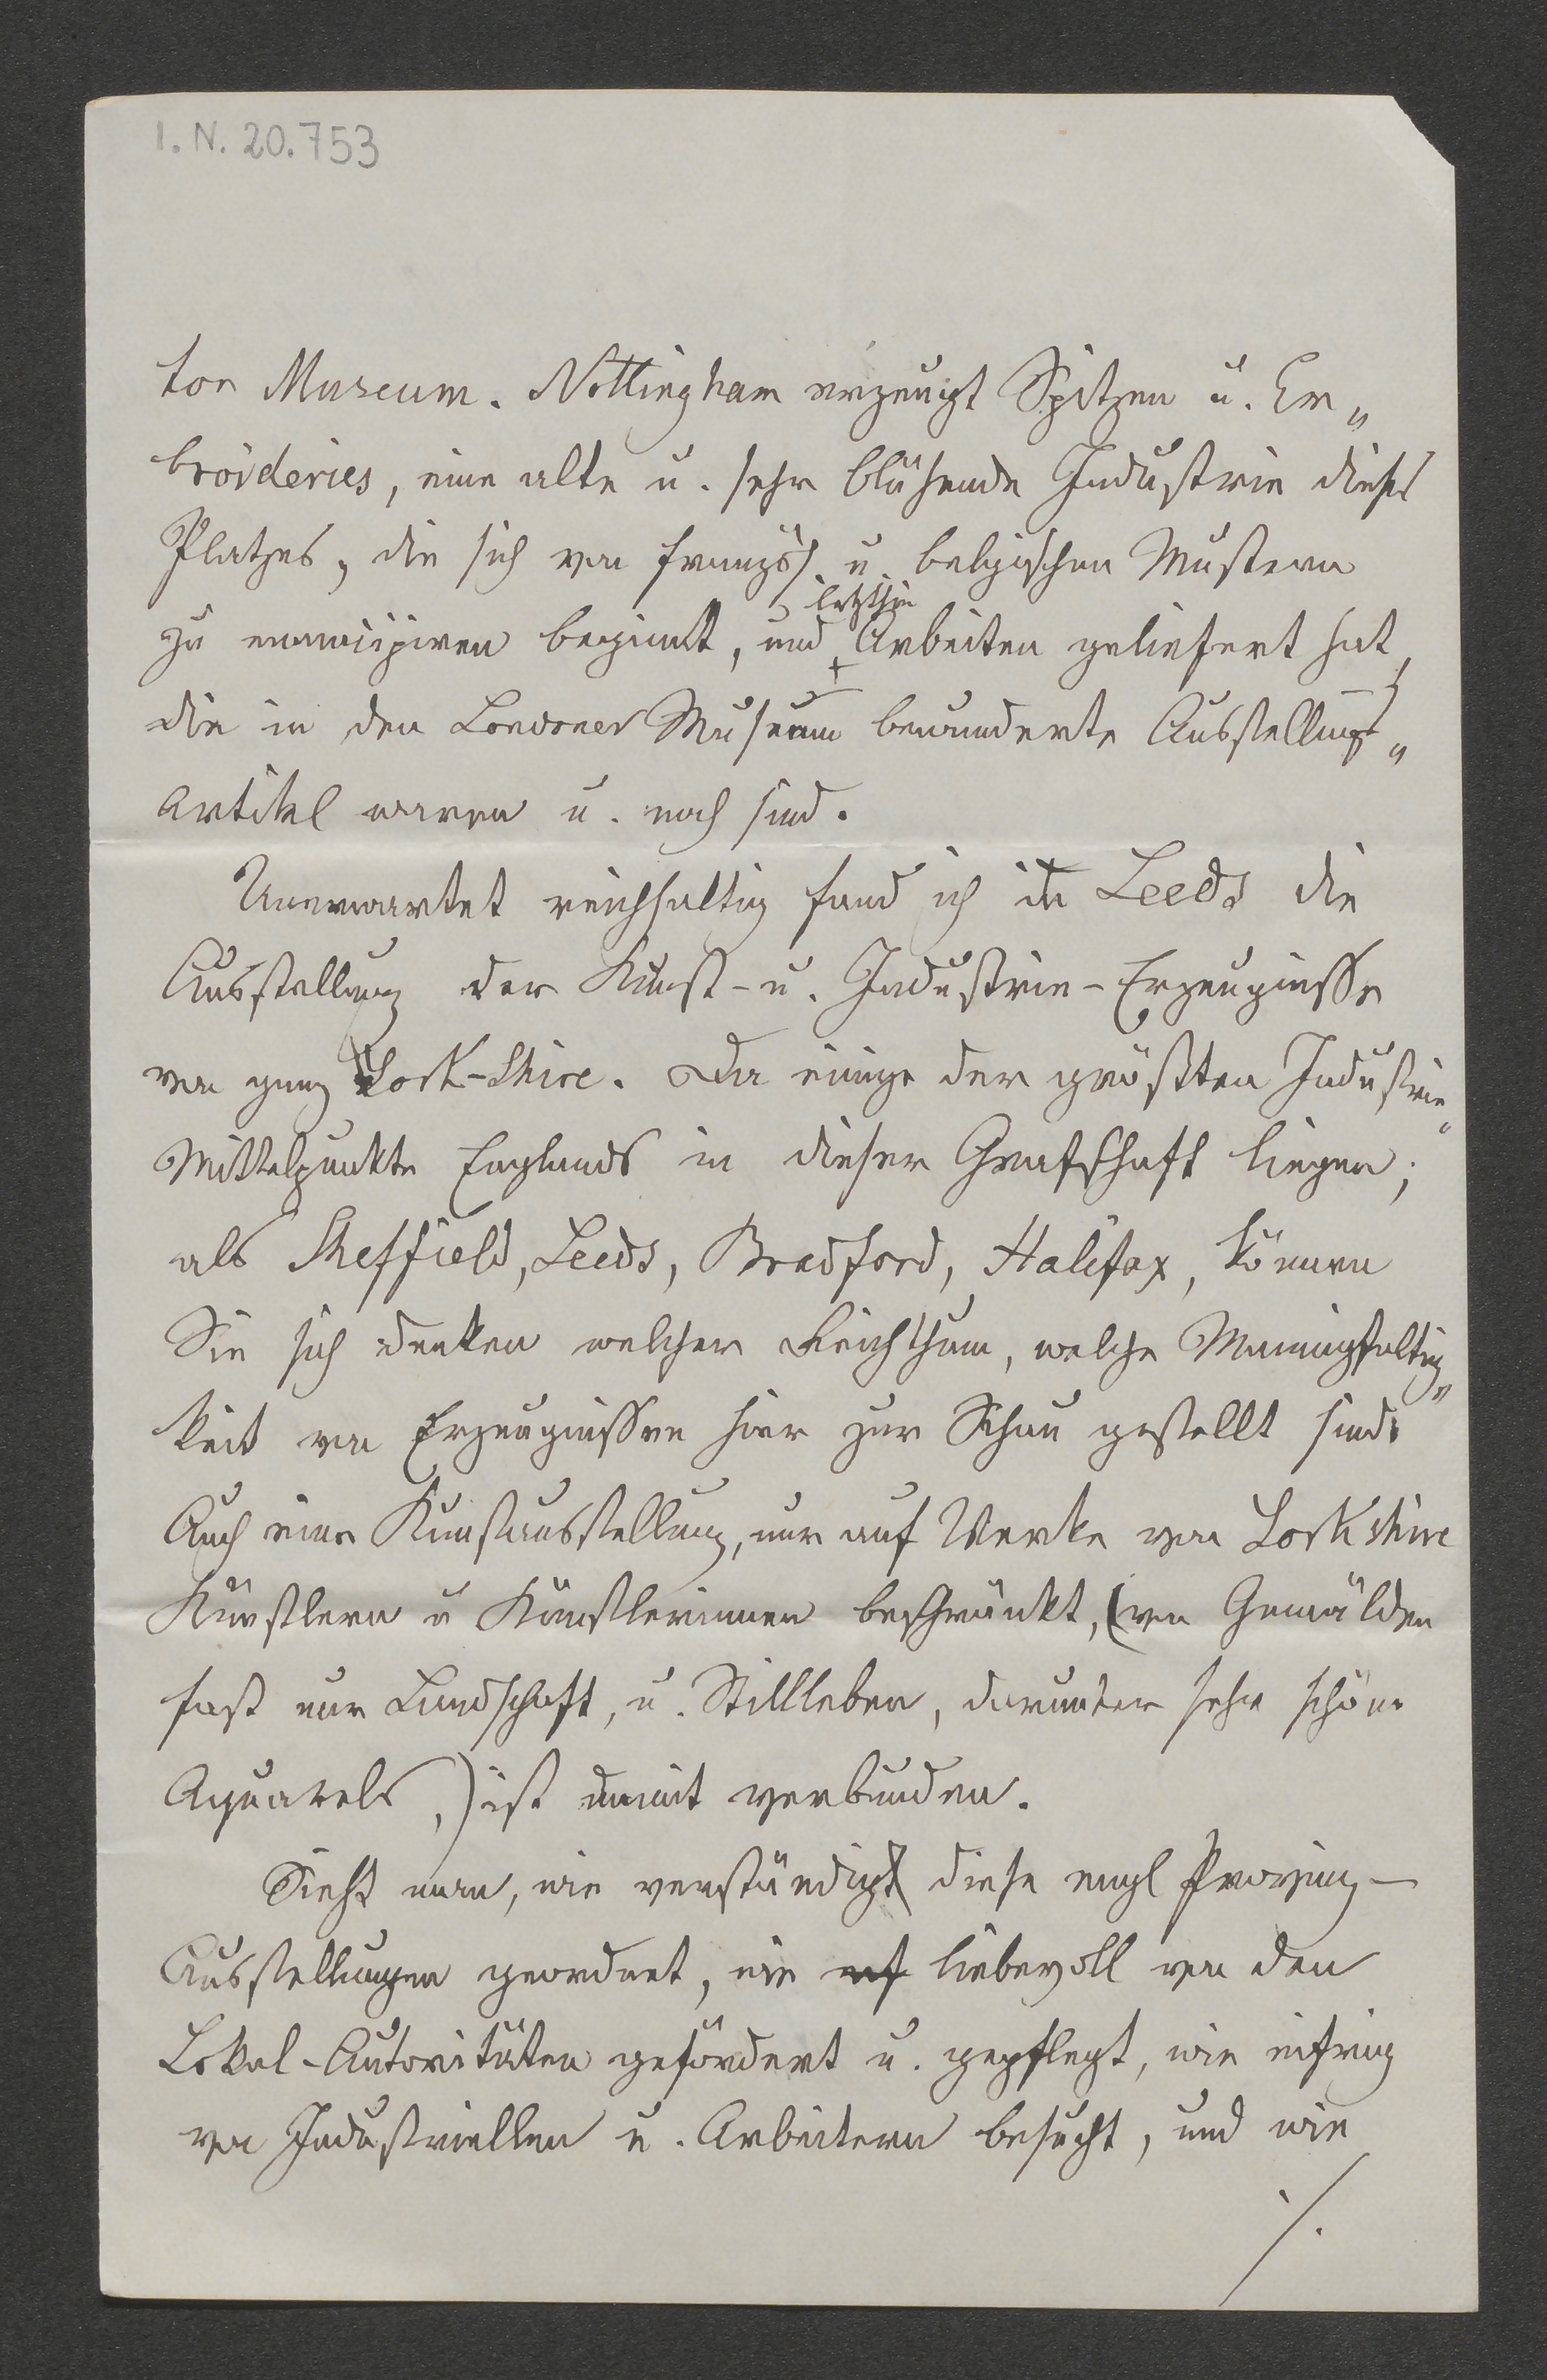 I. N. 20.753
ton Museum. Nottingham erzeugt Spitzen u. Em„
broideries, eine alte u. sehr blühende Industrie dieses
Platzes, die sich von französ. u. belgischen Mustern
letzthin
zu emancipiren beginnt, und Arbeiten geliefert hat,
die in den Londoner Museum bewunderte Ausstellungs„
Artikel waren u. noch sind.
Unerwartet reichhaltig fand ich in Leeds die
Ausstellung der Kunst- u. Industrie-Erzeugnisse
von ganz York-Shire. Da einige der größten Industrie„
Mittelpunkte Englands in dieser Grafschaft liegen;
als Sheffield, Leeds, Bradford, Halifax, können
Sie sich denken welcher Reichthum, welche Mannigfaltig„
keit von Erzeugnissen hier zur Schau gestellt sind.
Auch eine Kunstausstellung, nur auf Werke von Yorkshire
Künstlern u Künstlerinnen beschränkt, (von Gemälden
fast nur Landschaft, u. Stillleben, darunter sehr schöne
Aquarels,) ist damit verbunden.
Sieht man, wie verständig diese engl Provinz-
Ausstellungen geordnet, wie liebevoll von den
Lokal-Autoritäten gefördert u. gepflegt, wie eifrig
von Industriellen u. Arbeitern besucht, und wie
./.